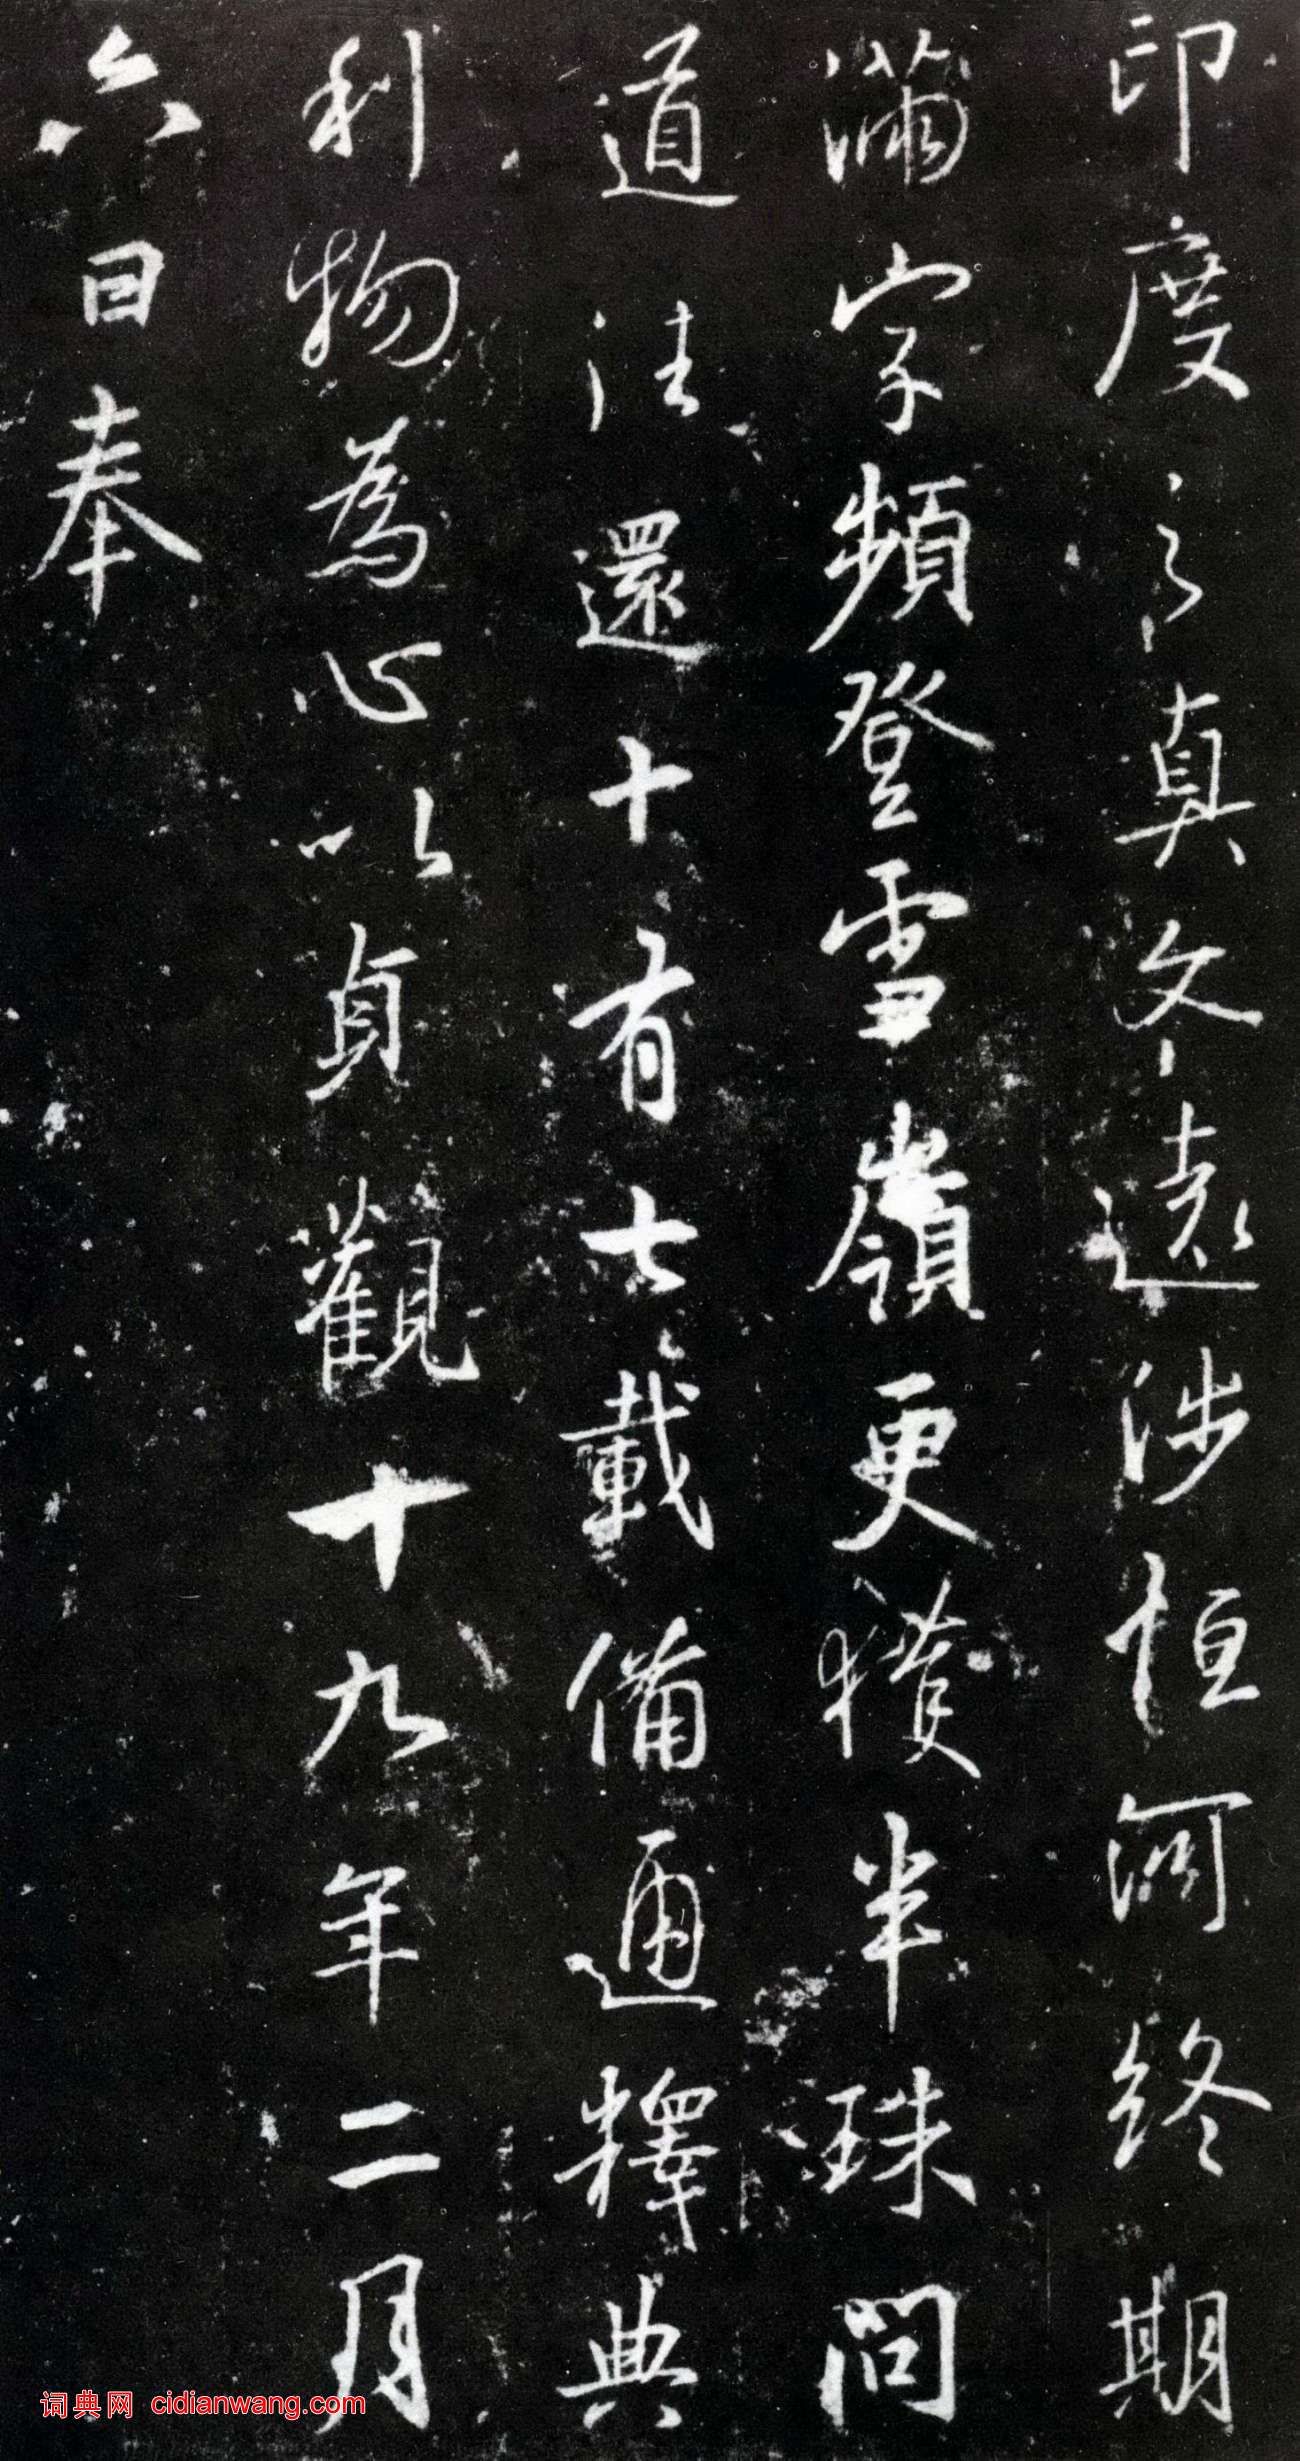 印度之真文遠涉恒河終期
滿字頻登雪嶺更獲半珠問
道法還十有七載備通釋典
利物為心以貞觀十九年二月
六日奉
词典网 cidianwang.com